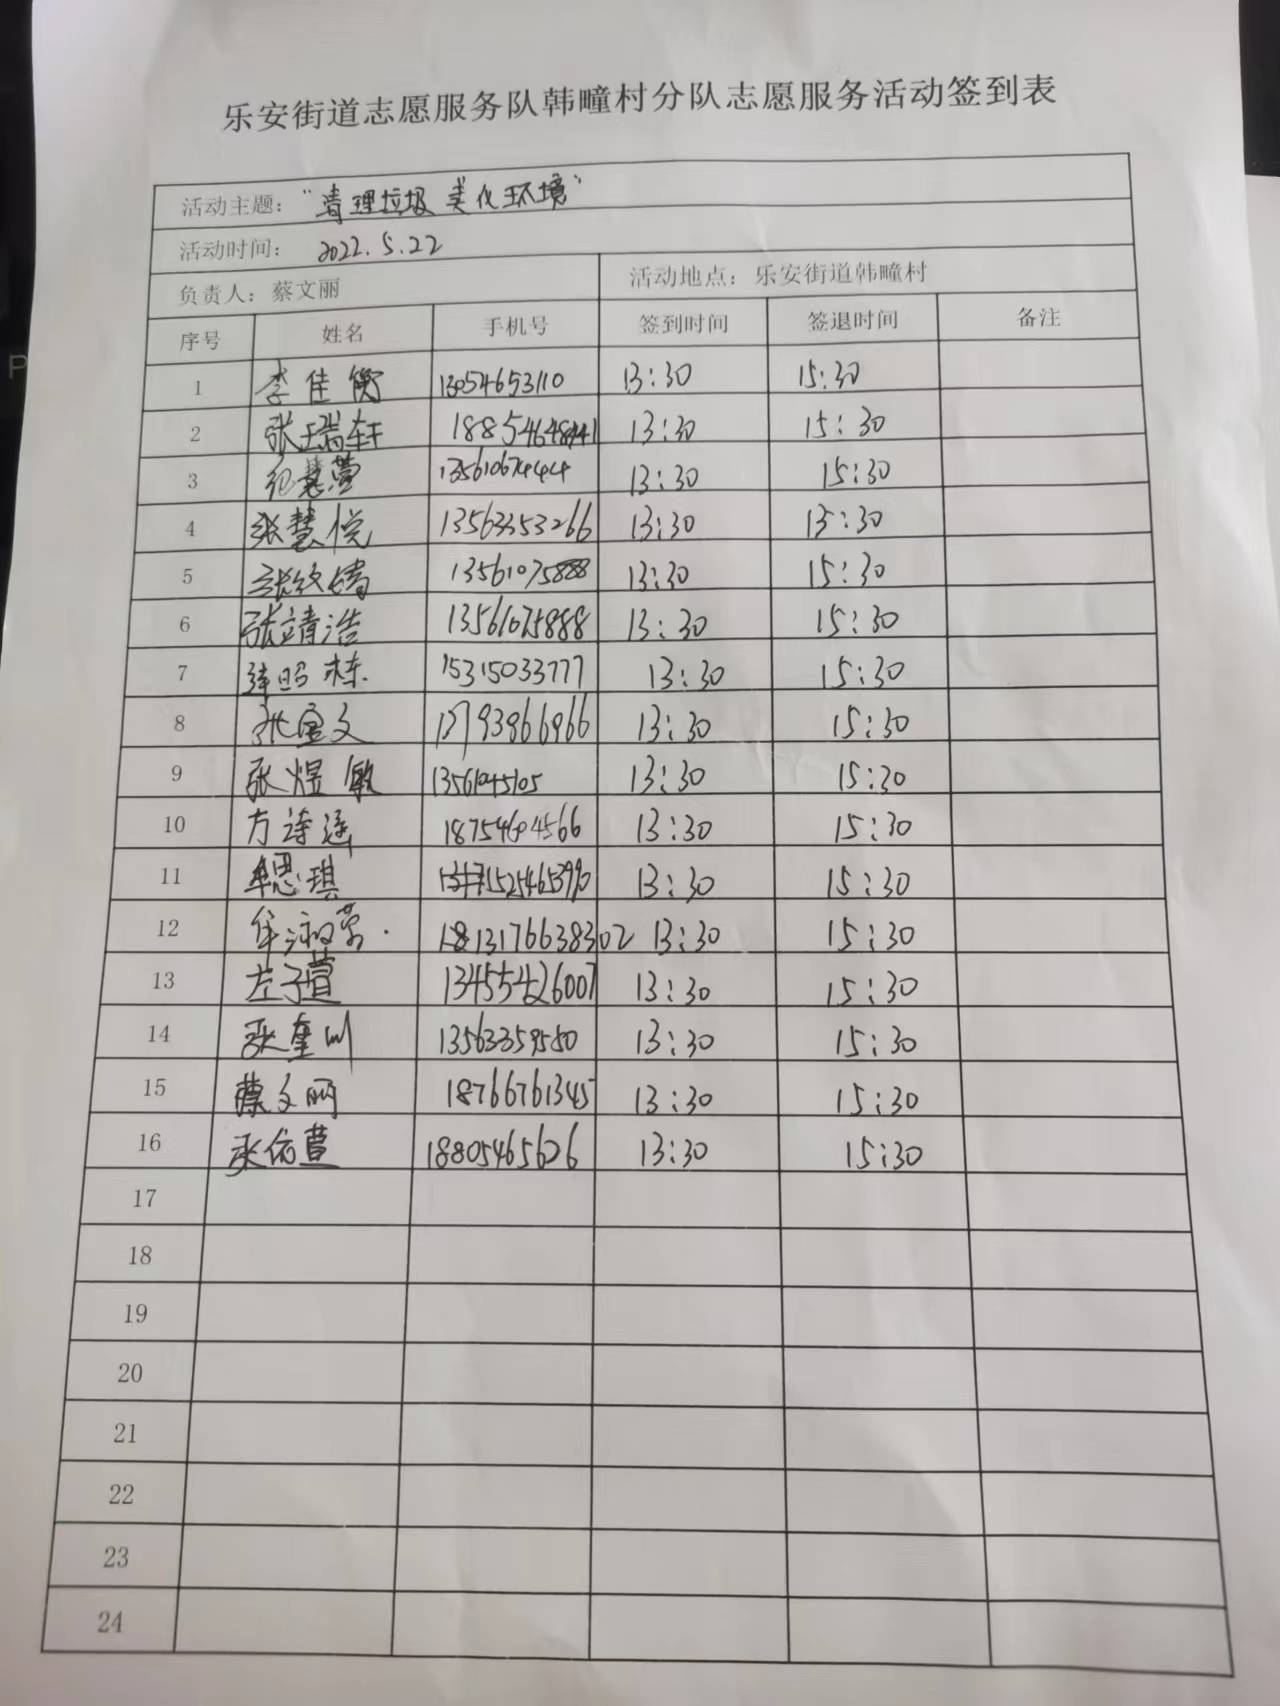 乐安街道志愿服务队韩疃村分队志愿服务活动签到表
活动主题："清理垃圾 美化环境"
活动时间： 2022.5.22
负责人：蔡文丽 活动地点：乐安街道韩疃村
序号 姓名 手机号 签到时间 签退时间 备注
1 李佳衡 13054653110 13:30 15:30
2 张瑞轩 13:30 15:30
3 纪慧萱 13561067444 13:30 15:30
4 张慧悦 13563353266 13:30 15:30
5 13561075888 13:30 15:30
6 张靖浩 13561075888 13:30 15:30
7 15315033777 13:30 15:30
8 13793966966 13:30 15:30
9 张煜敏 13561045105 13:30 15:30
10 方诗遥 18754604566 13:30 15:30
11 牟思琪 13:30 15:30
12 13:30 15:30
13 左子萱 13455426007 13:30 15:30
14 13563359550 13:30 15:30
15 蔡文丽 18766761345 13:30 15:30
16 张依萱 18805465626 13:30 15:30
17
18
19
20
21
22
23
24